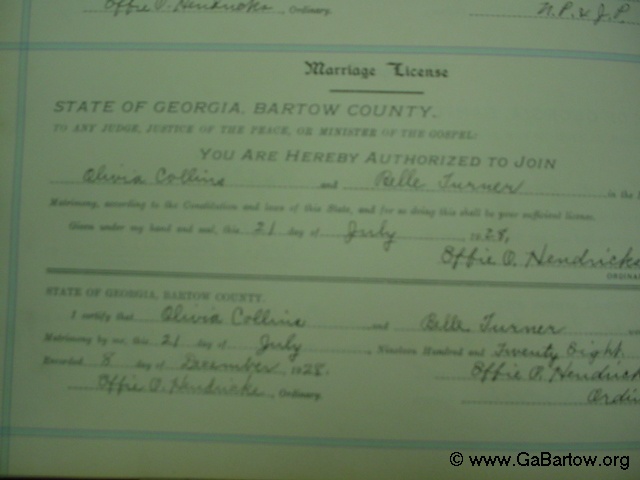 Offie P. Hendricks, Ordinary. N.P. & J.P.
Marriage License
STATE OF GEORGIA, BARTOW COUNTY.
TO ANY JUDGE, JUSTICE OF THE PEACE, OR MINISTER OF THE GOSPEL:
YOU ARE HEREBY AUTHORIZED TO JOIN
Olivia Collins and Belle Turner in the
Matrimony, according to the Constitution and laws of this State, and for so doing this shall be your sufficient license.
Given under my hand and seal, this 21 day of July 1928,
Offie P. Hendricks
ORDINA
STATE OF GEORGIA, BARTOW COUNTY.
I certify that Olivia Collins and Belle Turner
Matrimony by me, this 21 day of July, Nineteen Hundred and Twenty Eight
Recorded 8 day of December 1928. Offie P. Hendrick
Offie P. Hendricks, Ordinary. Ordi
© www.GaBartow.org